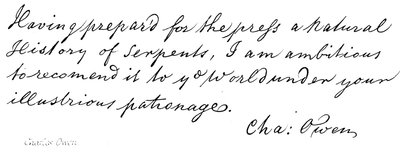 Having prepar'd for the press a Natural
History of Serpents, I am ambitious
to recomend it to yͤ World under your
illustrious patronage.
Cha: Owen
Charles Owen